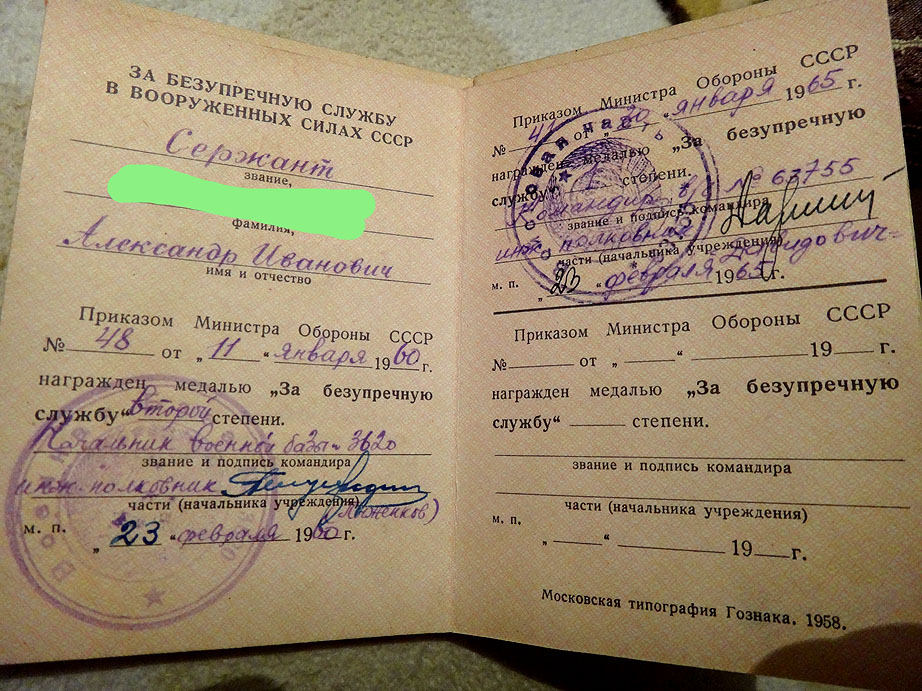 ЗА БЕЗУПРЕЧНУЮ СЛУЖБУ
В ВООРУЖЕННЫХ СИЛАХ СССР
Сержант
звание,
фамилия,
Александр Иванович
имя и отчество
Приказом Министра Обороны СССР
№ 48 от „11“ января 1960 г.
награжден медалью „За безупречную
службу“ второй степени.
Начальник военной базы 3620
звание и подпись командира
инж. полковник
части (начальника учреждения)
м. п.
„23“ февраля 1960 г.
Приказом Министра Обороны СССР
№ 41 от „20“ января 1965 г.
награжден медалью „За безупречную
службу“ I степени.
Командир в/ч № 63755
звание и подпись командира
инж. полковник
части (начальника учреждения) Давидович
м. п. „23“ февраля 1965 г.
Приказом Министра Обороны СССР
№ от „ “ 19 г.
награжден медалью „За безупречную
службу“ степени.
звание и подпись командира
части (начальника учреждения)
м. п.
„ “ 19 г.
Московская типография Гознака. 1958.